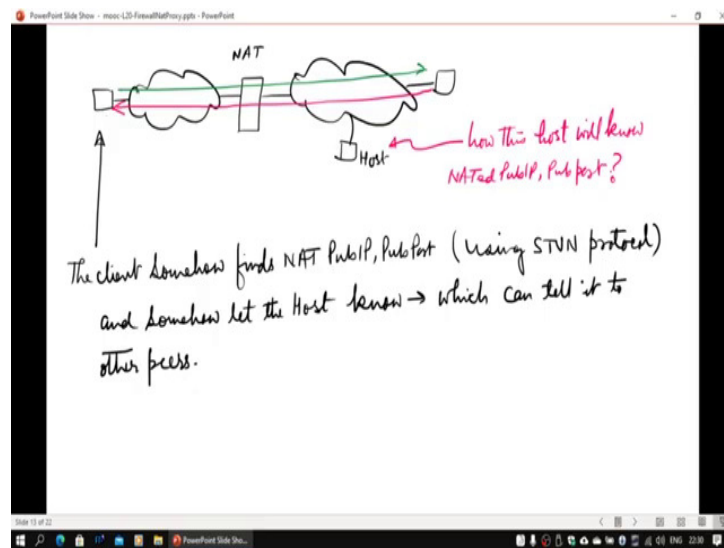 PowerPoint Slide Show - mooc-L20-FirewallNatProxy.pptx - PowerPoint
NAT
Host
how this host will know
NATed PubIP, Pub port?
The client somehow finds NAT PubIP, PubPort (using STUN protocol)
and somehow let the Host know → which can tell it to
other peers.
Slide 13 of 22
PowerPoint Slide Sho...
ENG 22:30